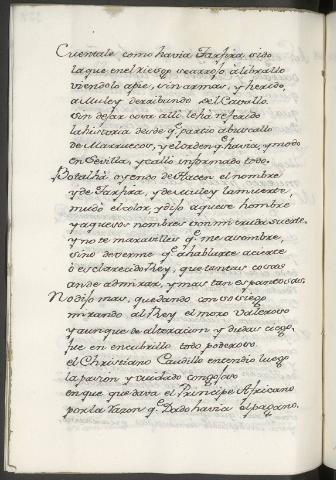 Cuentale como havia Tarfira sido
la que en el riesgo se arrojo a librallo
viendolo a pie, sin armas, y herido,
a Muley derribando del Cavallo.
Sin dejar cosa alli le há referido
la historia desde q.e partio a buscallo
de Marruecos, y el orden q.e havia, y modo
en Sevilla, y calló informado todo.
Botalhá oyendo de Hacen el nombre
y de Tarfira, y de Muley la muerte,
mudó el color, y dijo aquese hombre
y aquesos nombres son mi cruda suerte.
y no te maravilles q.e me asombre,
sino de verme q.e a hablarte acierte
ó esclarecido Rey, que tantas cosas
an de admirar, y mas tan espantosas.
No dijo mas, quedando con sosiego
mirando al Rey el moro valeroso
y aunque de alteracion y dudas ciego,
fue en encubrillo todo poderoso.
el Christiano Caudillo entendio luego
la pasion y cuidado congojoso
en que quedava el Principe Africano
por la razon q.e Dado havia el pagano.